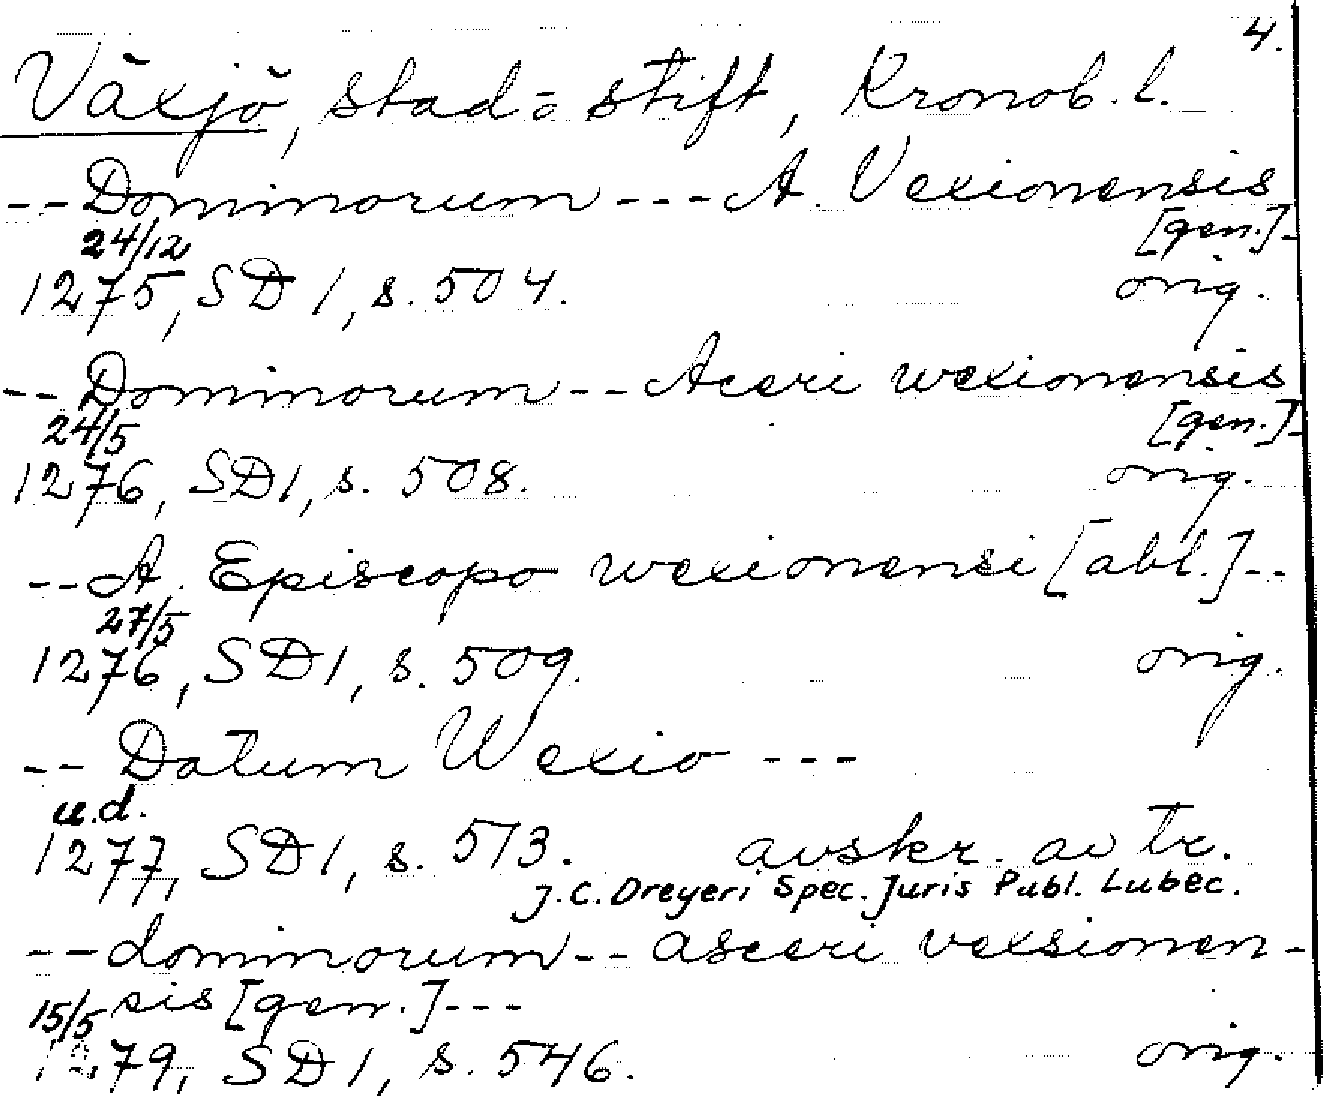 4.
Växjö, stad o stift, Kronob. l.
-- Dominorum --- A. Vexionensis
[gen.]-
24/12
1275, SD 1, s. 504. orig.
-- Dominorum -- Aceri wexionensis
[gen.]-
24/5
1276, SD 1, s. 508. orig.
-- A. Episcopo wexionensi [abl.]--
27/5
1276, SD 1, s. 509. orig.
-- Datum Wexio ---
u.d.
1277, SD 1, s. 513. avskr. av tr.
J.C. Dreyeri Spec. Juris Publ. Lubec.
-- dominorum -- asceri vexsionen-
sis [gen.]---
15/5
1279, SD 1, s. 546. orig.